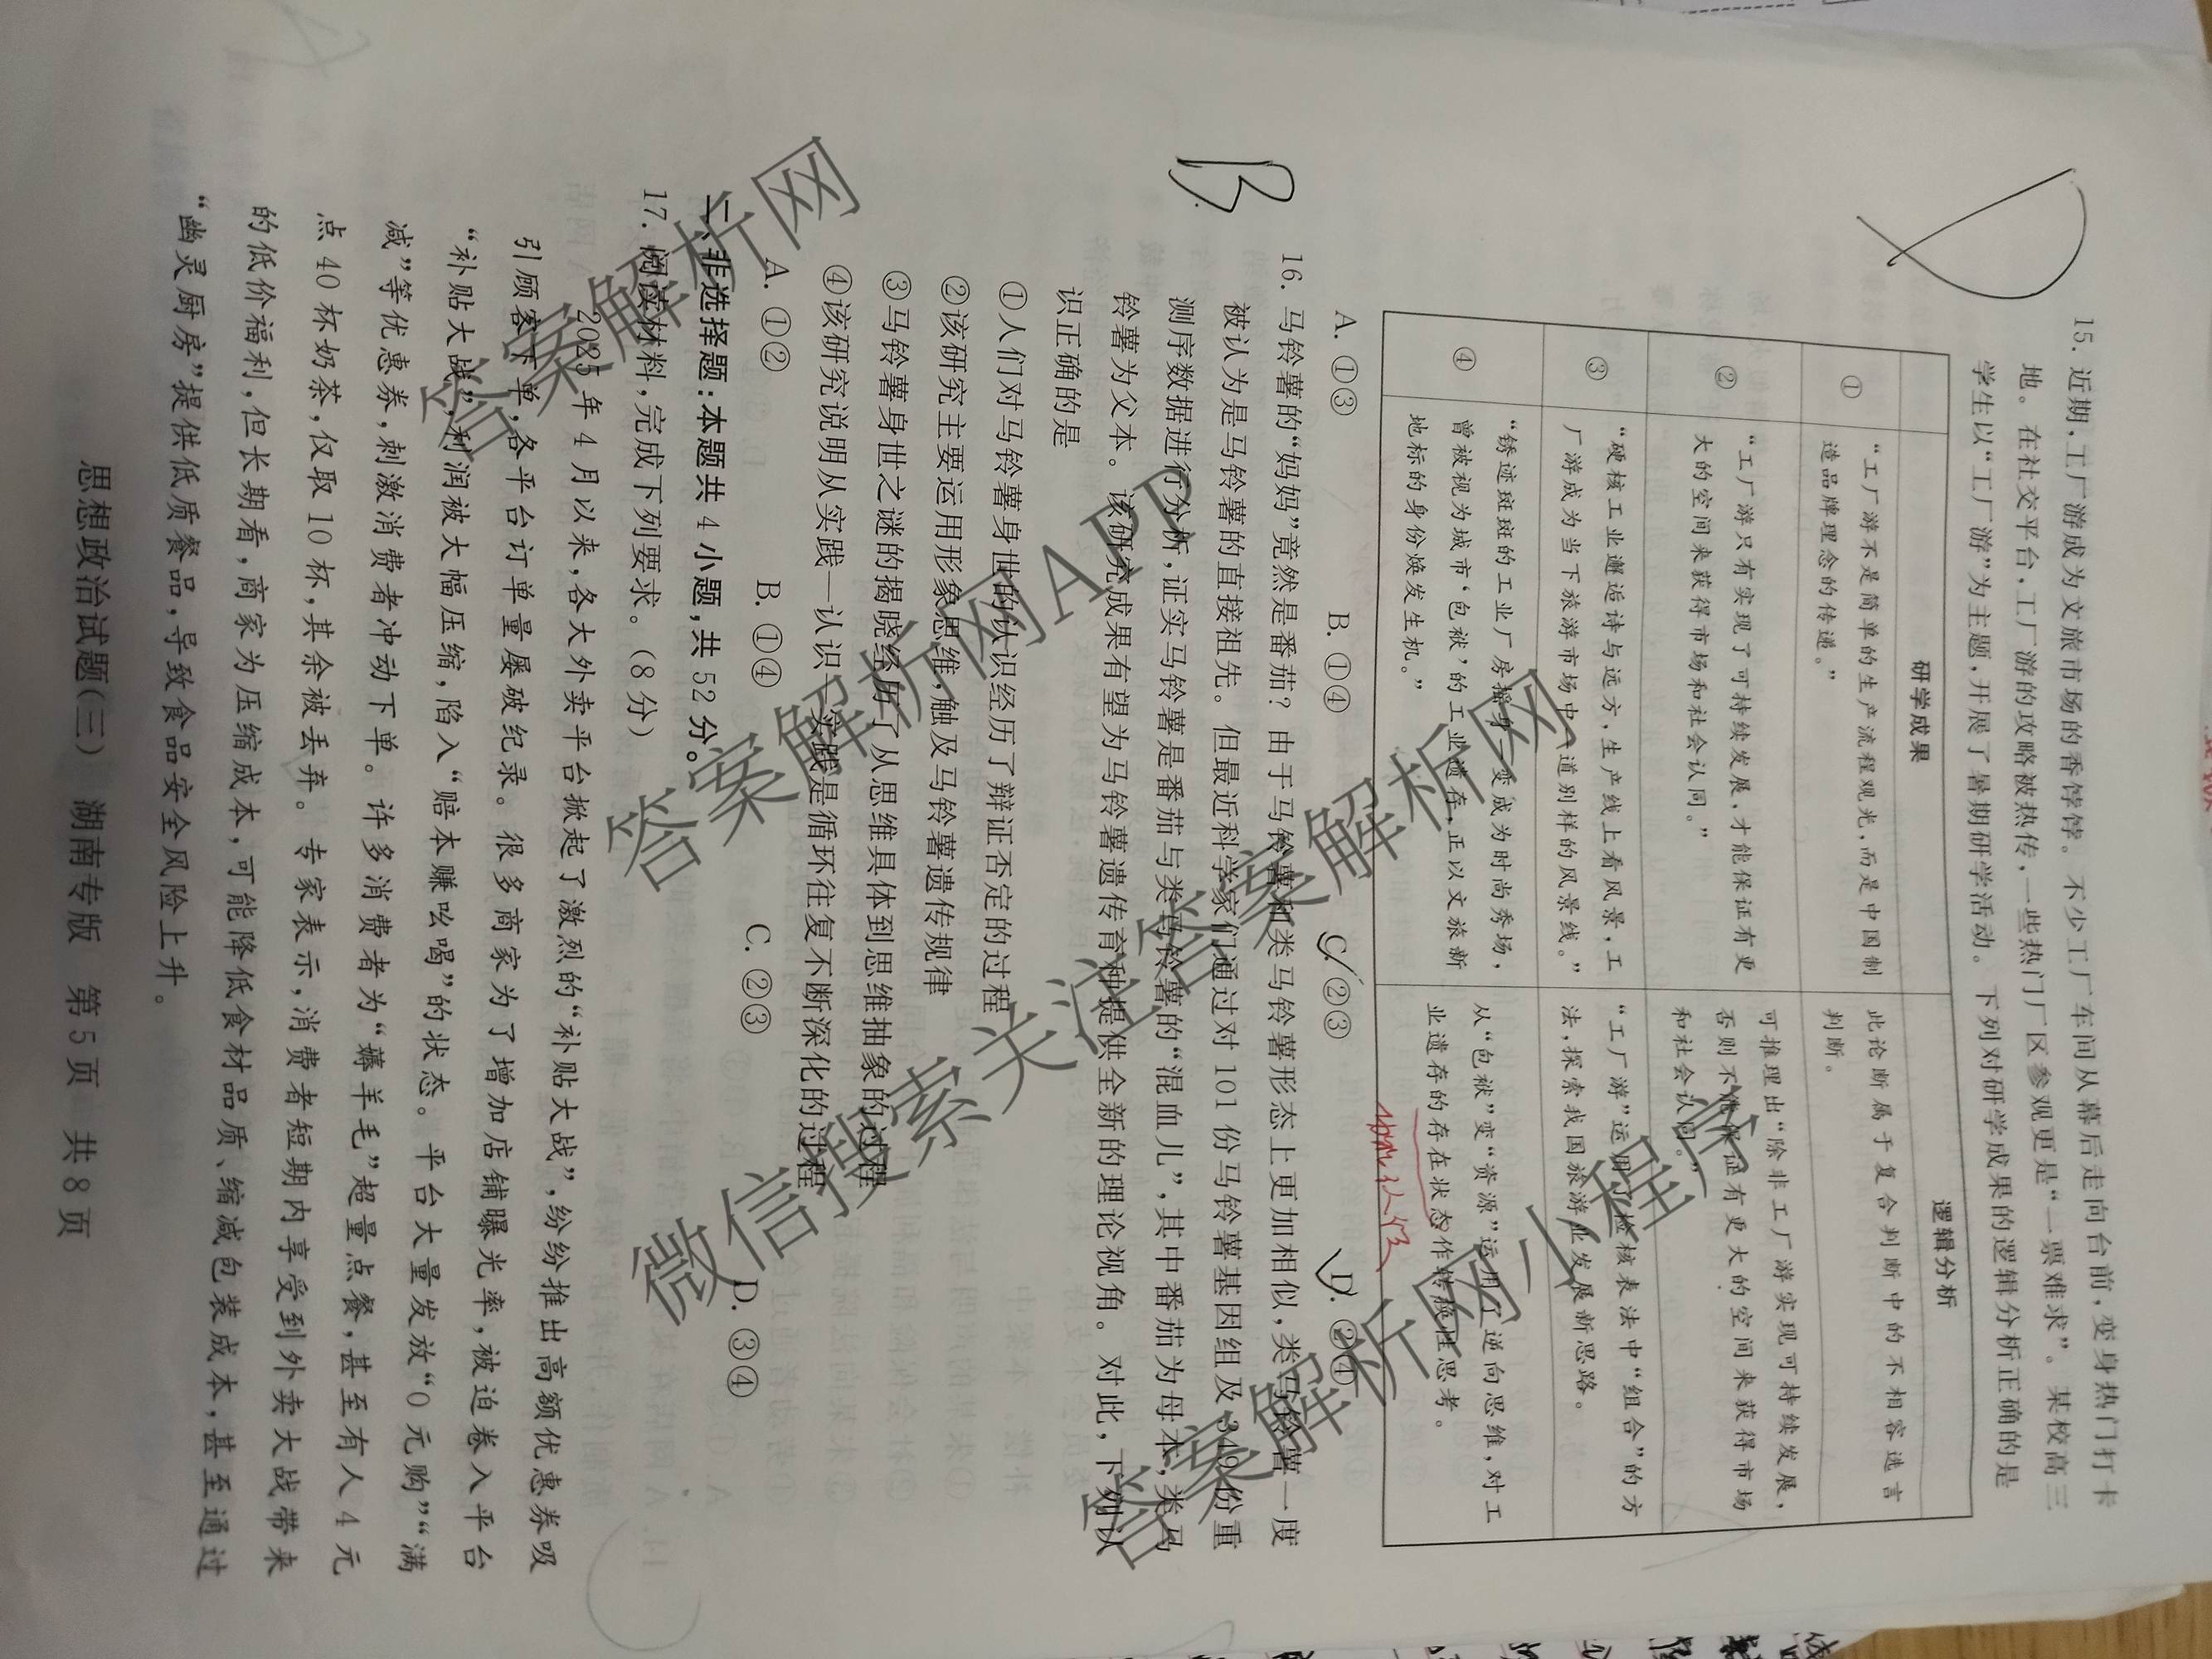 15. 近期,工厂游成为文旅市场的香饽饽。不少工厂车间从幕后走向台前,变身热门打卡
地。在社交平台,工厂游的攻略被热传,一些热门厂区参观更是“一票难求”。某校高三
学生以“工厂游”为主题,开展了暑期研学活动。下列对研学成果的逻辑分析正确的是
研学成果 逻辑分析
① “工厂游不是简单的生产流程观光,而是中国制
造品牌理念的传递。”
此论断属于复合判断中的不相容选言
判断。
② “工厂游只有实现了可持续发展,才能保证有更
大的空间来获得市场和社会认同。”
可推理出“除非工厂游实现可持续发展,
否则不能保证有更大的空间来获得市场
和社会认同。”
③ “硬核工业邂逅诗与远方,生产线上看风景,工
厂游成为当下旅游市场中一道别样的风景线。”
“工厂游”运用了检核表法中“组合”的方
法,探索我国旅游业发展新思路。
④ “锈迹斑斑的工业厂房摇身一变成为时尚秀场,
曾被视为城市‘包袱’的工业遗存,正以文旅新
地标的身份焕发生机。”
从“包袱”变“资源”运用了逆向思维,对工
业遗存的存在状态作转换性思考。
A. ①③ B. ①④ C. ②③ D. ②④
B
16. 马铃薯的“妈妈”竟然是番茄？由于马铃薯和类马铃薯形态上更加相似,类马铃薯一度
被认为是马铃薯的直接祖先。但最近科学家们通过对 101 份马铃薯基因组及 349 份重
测序数据进行分析,证实马铃薯是番茄与类马铃薯的“混血儿”,其中番茄为母本,类马
铃薯为父本。该研究成果有望为马铃薯遗传育种提供全新的理论视角。对此,下列认
识正确的是
①人们对马铃薯身世的认识经历了辩证否定的过程
②该研究主要运用形象思维,触及马铃薯遗传规律
③马铃薯身世之谜的揭晓经历了从思维具体到思维抽象的过程
④该研究说明从实践—认识—实践是循环往复不断深化的过程
A. ①② B. ①④ C. ②③ D. ③④
二、非选择题:本题共 4 小题,共 52 分。
17. 阅读材料,完成下列要求。(8 分)
2025 年 4 月以来,各大外卖平台掀起了激烈的“补贴大战”,纷纷推出高额优惠券吸
引顾客下单,各平台订单量屡破纪录。很多商家为了增加店铺曝光率,被迫卷入平台
“补贴大战”,利润被大幅压缩,陷入“赔本赚吆喝”的状态。平台大量发放“0 元购”“满
减”等优惠券,刺激消费者冲动下单。许多消费者为“薅羊毛”超量点餐,甚至有人 4 元
点 40 杯奶茶,仅取 10 杯,其余被丢弃。专家表示,消费者短期内享受到外卖大战带来
的低价福利,但长期看,商家为压缩成本,可能降低食材品质、缩减包装成本,甚至通过
“幽灵厨房”提供低质餐品,导致食品安全风险上升。
思想政治试题(三) 湖南专版 第 5 页 共 8 页
答案解析网
答案解析网APP
微信搜索关注 答案解析网
答案解析网小程序